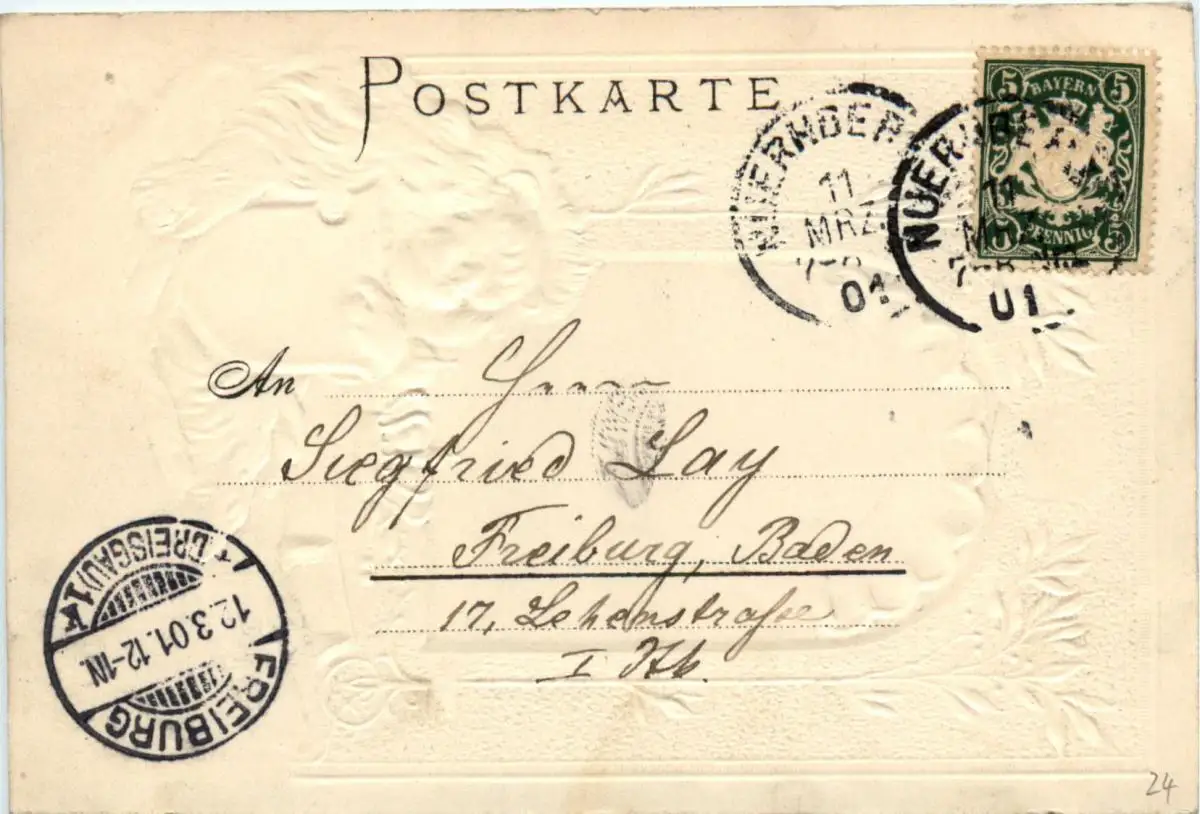 POSTKARTE
5 BAYERN 5
5 PFENNIG 5
NUERNBER
11
MRZ
01
NUERNBE
11
MRZ
01
An Herrn
Siegfried Lay
Freiburg, Baden
17, Lehenstraße
I Stk.
FREIBURG
12.3.01.12-1N.
(BREISGAU) 1
24